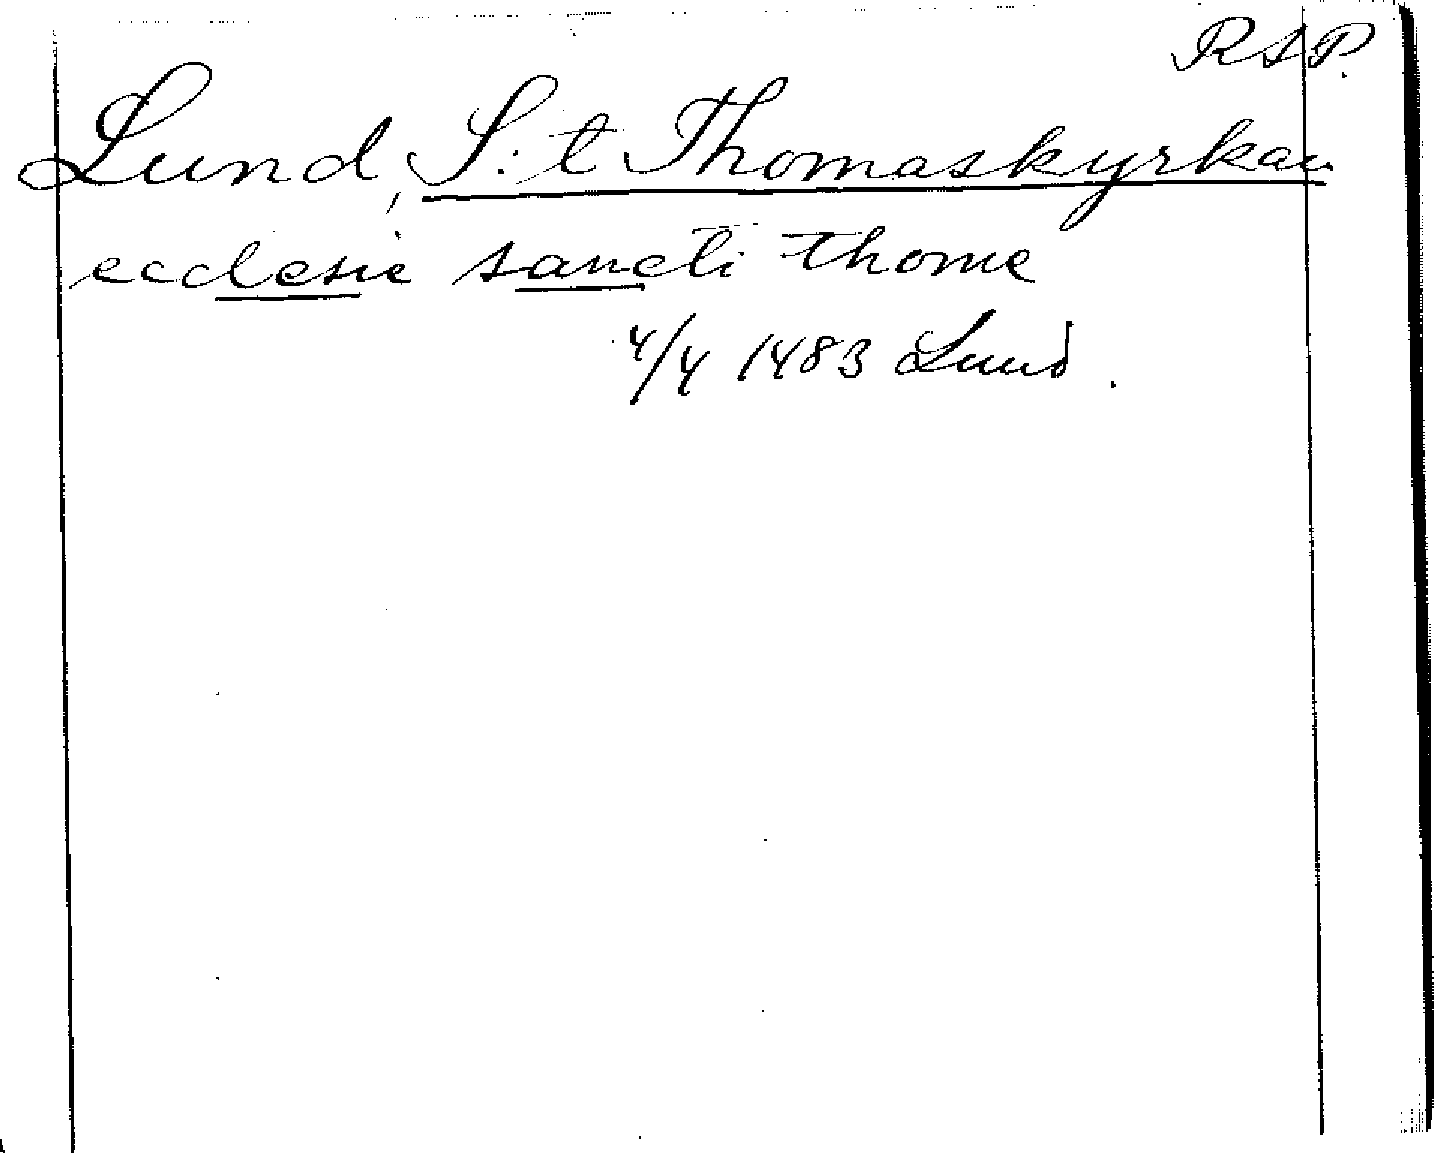 RAP.
Lund, S:t Thomaskyrkan
ecclesie sancti thome
4/4 1483 Lund.